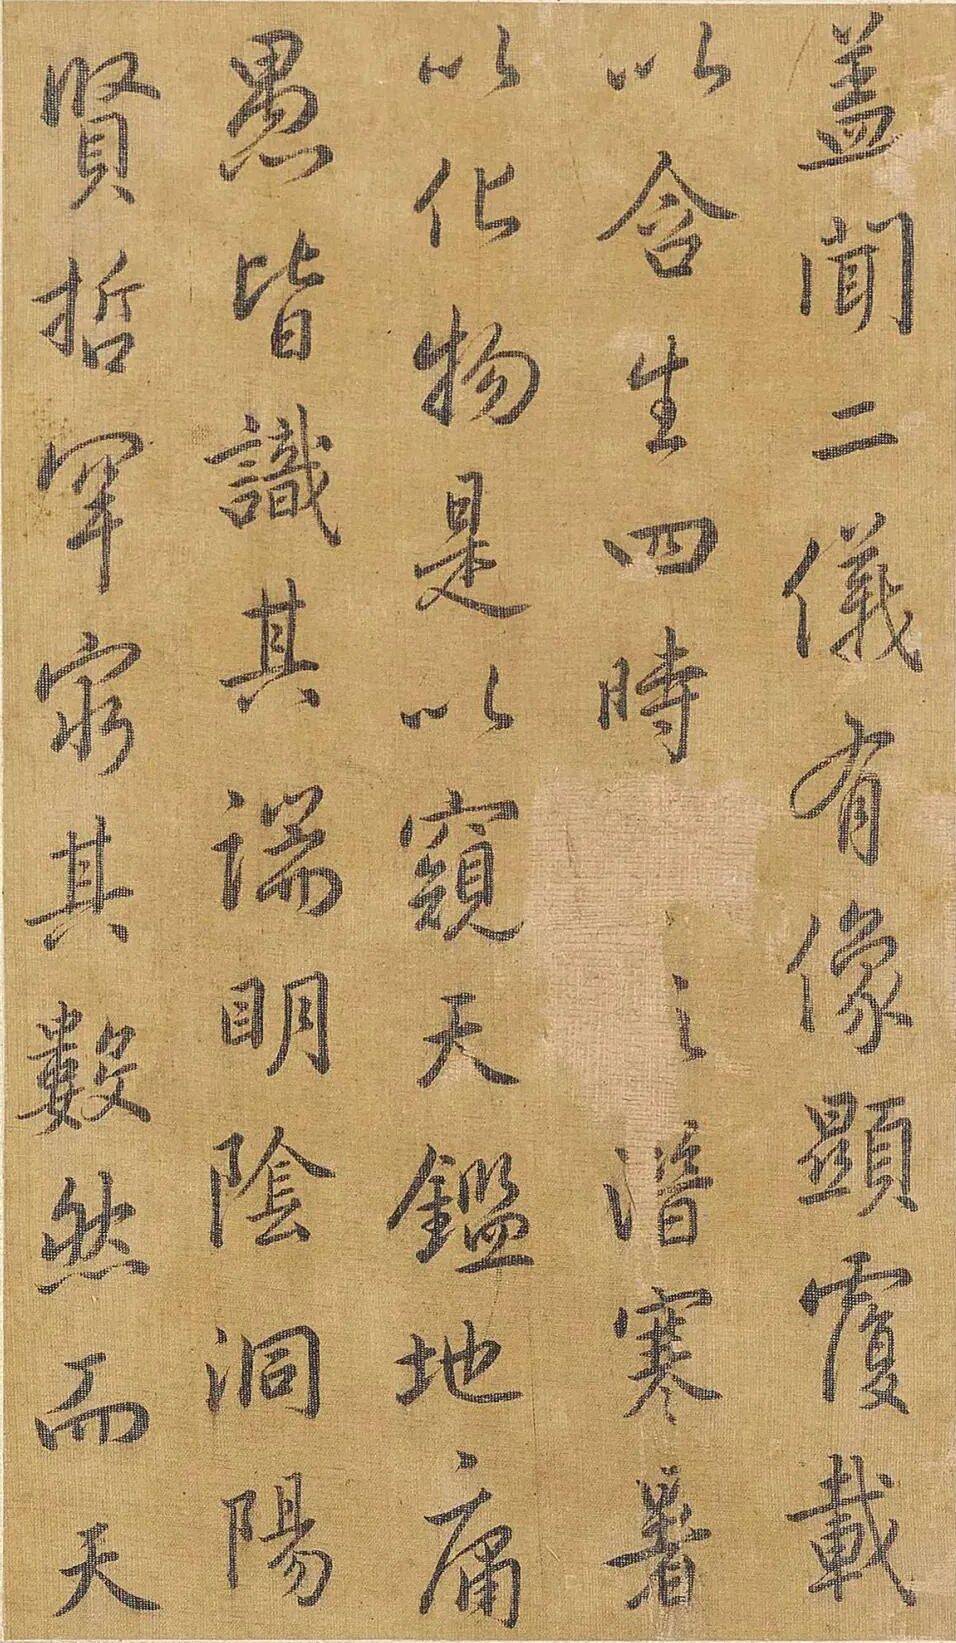 盖聞二儀有像顯覆載
以含生四時潛寒暑
以化物是以窺天鑑地庸
愚皆識其端明陰洞陽
賢哲罕窮其數然而天